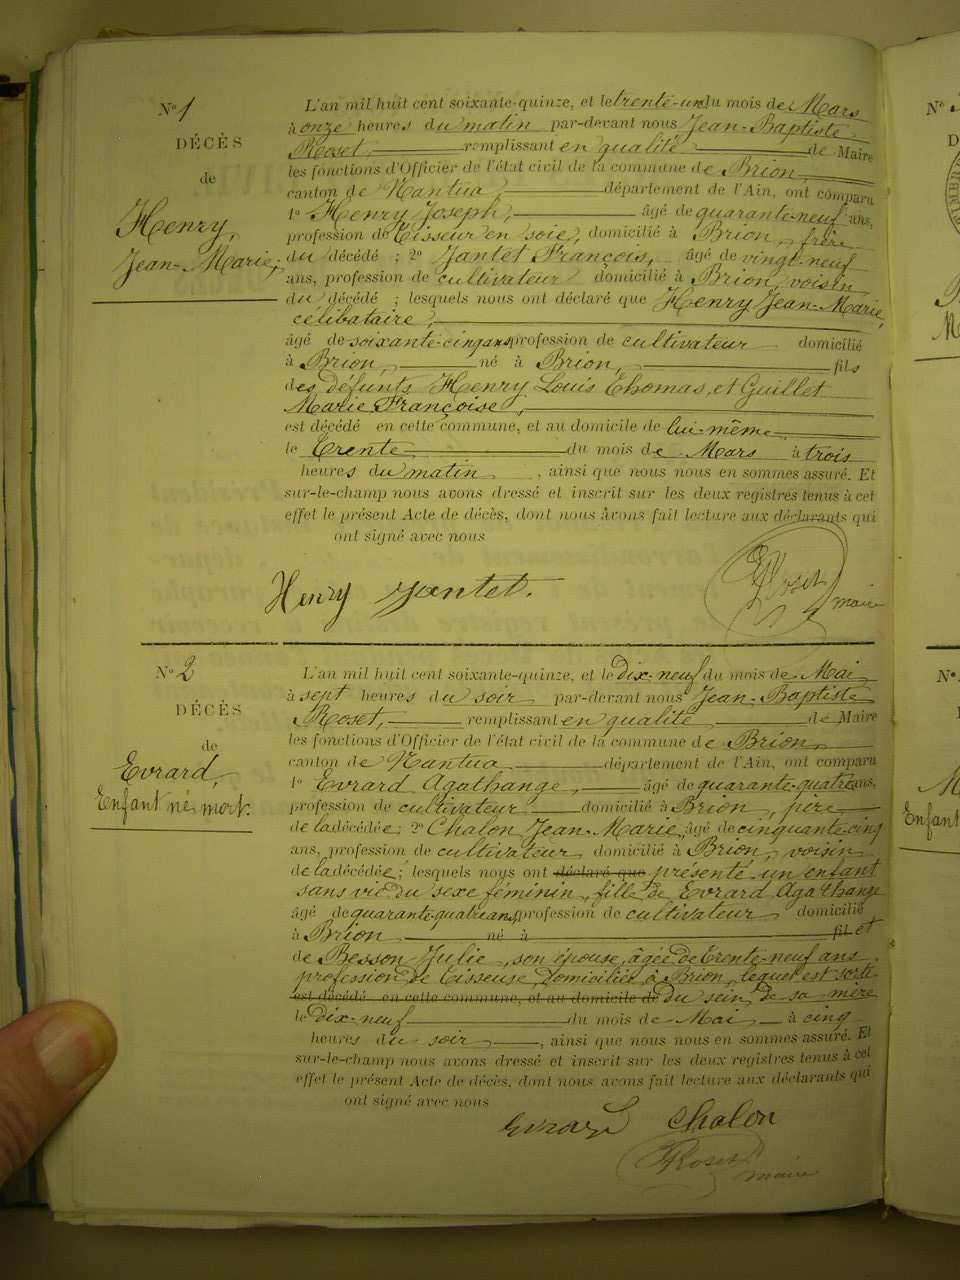 N° 1
DÉCÈS
de
Henry,
Jean-Marie,
L'an mil huit cent soixante-quinze, et le trente-un du mois de Mars
à onze heures du matin par-devant nous Jean-Baptiste
Roset, remplissant en qualité de Maire
les fonctions d'Officier de l'état civil de la commune de Brion,
canton de Nantua département de l'Ain, ont comparu
1° Henry Joseph, âgé de quarante-neuf ans,
profession de Tisseur en soie, domicilié à Brion, frère
du décédé ; 2° Jantet François, âgé de vingt-neuf
ans, profession de cultivateur domicilié à Brion, voisin
du décédé ; lesquels nous ont déclaré que Henry Jean-Marie,
célibataire,
âgé de soixante-cinq ans, profession de cultivateur domicilié
à Brion, né à Brion, fils
des défunts Henry Louis Thomas, et Guillet
Marie Françoise,
est décédé en cette commune, et au domicile de lui-même
le Trente du mois de Mars à trois
heures du matin , ainsi que nous nous en sommes assuré. Et
sur-le-champ nous avons dressé et inscrit sur les deux registres tenus à cet
effet le présent Acte de décès, dont nous avons fait lecture aux déclarants qui
ont signé avec nous
Henry Jantet. Roset maire
N° 2
DÉCÈS
de
Evrard,
Enfant né mort.
L'an mil huit cent soixante-quinze, et le dix-neuf du mois de Mai
à sept heures du soir par-devant nous Jean-Baptiste
Roset, remplissant en qualité de Maire
les fonctions d'Officier de l'état civil de la commune de Brion,
canton de Nantua département de l'Ain, ont comparu
1° Evrard Agathange, âgé de quarante-quatre ans,
profession de cultivateur domicilié à Brion, père
de la décédée ; 2° Chalon Jean-Marie, âgé de cinquante-cinq
ans, profession de cultivateur domicilié à Brion, voisin
de la décédée ; lesquels nous ont déclaré que présenté un enfant
sans vie du sexe féminin, fille de Evrard Agathange
âgé de quarante-quatre ans, profession de cultivateur domicilié
à Brion né à fil et
de Besson Julie, son épouse, âgée de Trente-neuf ans,
profession de Tisseuse, domiciliée à Brion, lequel est sorti
est décédé en cette commune, et au domicile de du sein de sa mère
le dix-neuf du mois de Mai à cinq
heures du soir , ainsi que nous nous en sommes assuré. Et
sur-le-champ nous avons dressé et inscrit sur les deux registres tenus à cet
effet le présent Acte de décès, dont nous avons fait lecture aux déclarants qui
ont signé avec nous
Evrard Chalon
Roset maire
N°
D
N°
Enfant